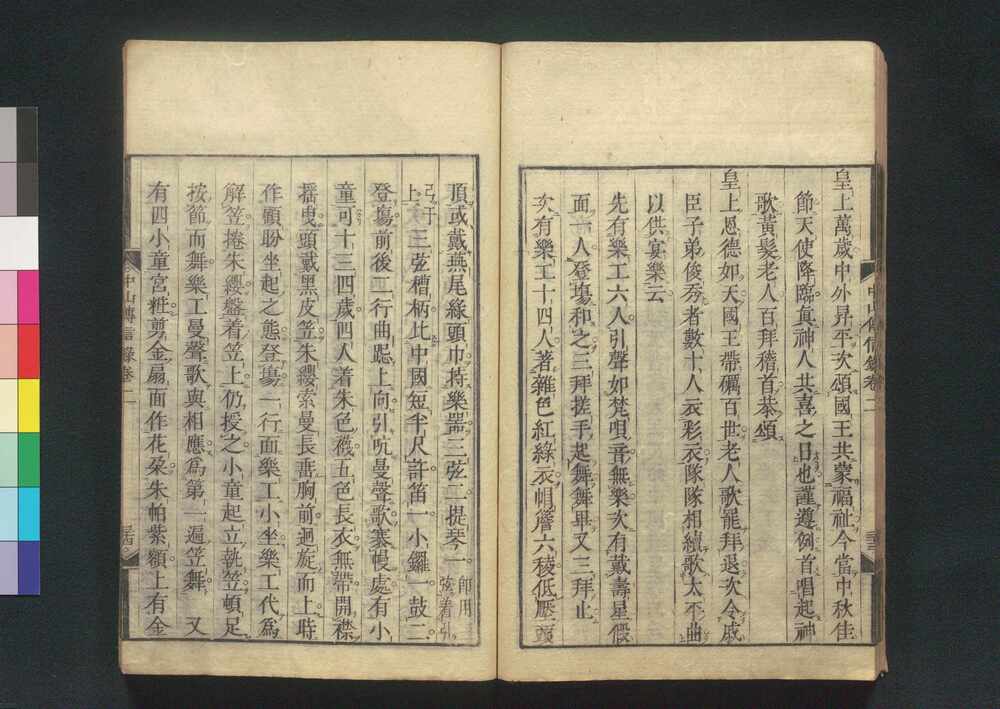 皇上萬歲中外昇平次頌國王共蒙福祉今當中秋佳
節天使降臨眞神人共喜之日也謹遵例首唱起神
歌黃髮老人百拜稽首恭頌
皇上恩德如天國王帶礪百世老人歌罷拜退次令戚
臣子弟俊秀者數十人衣彩衣隊隊相續歌太平曲
以供宴樂云
先有樂工六人引聲如梵唄音無樂次有戴壽星假
面一人登場和之三拜搓手起舞舞畢又三拜止
次有樂工十四人著雜色紅綠衣帽簷六稜低壓頭
中山傳信錄卷二
頂或戴燕尾綠頭巾持樂器三弦二提琴一卽用弦着引
弓于上三弦槽柄比中國短半尺許笛一小鑼一鼓二
登場前後二行曲跽上向引吭曼聲歌褰幔處有小
童可十三四歲四人着朱色襪五色長衣無帶開襟
搖曳頭戴黑皮笠朱纓索曼長垂胸前迴旋而上時
作顧盼坐起之態登場一行面樂工小坐樂工代爲
解笠捲朱纓盤着笠上仍授之小童起立執笠頓足
按節而舞樂工曼聲歌與相應爲第一遍笠舞 又
有四小童宮粧剪金扇面作花朶朱帕紫額上有金
中山傳信錄卷二